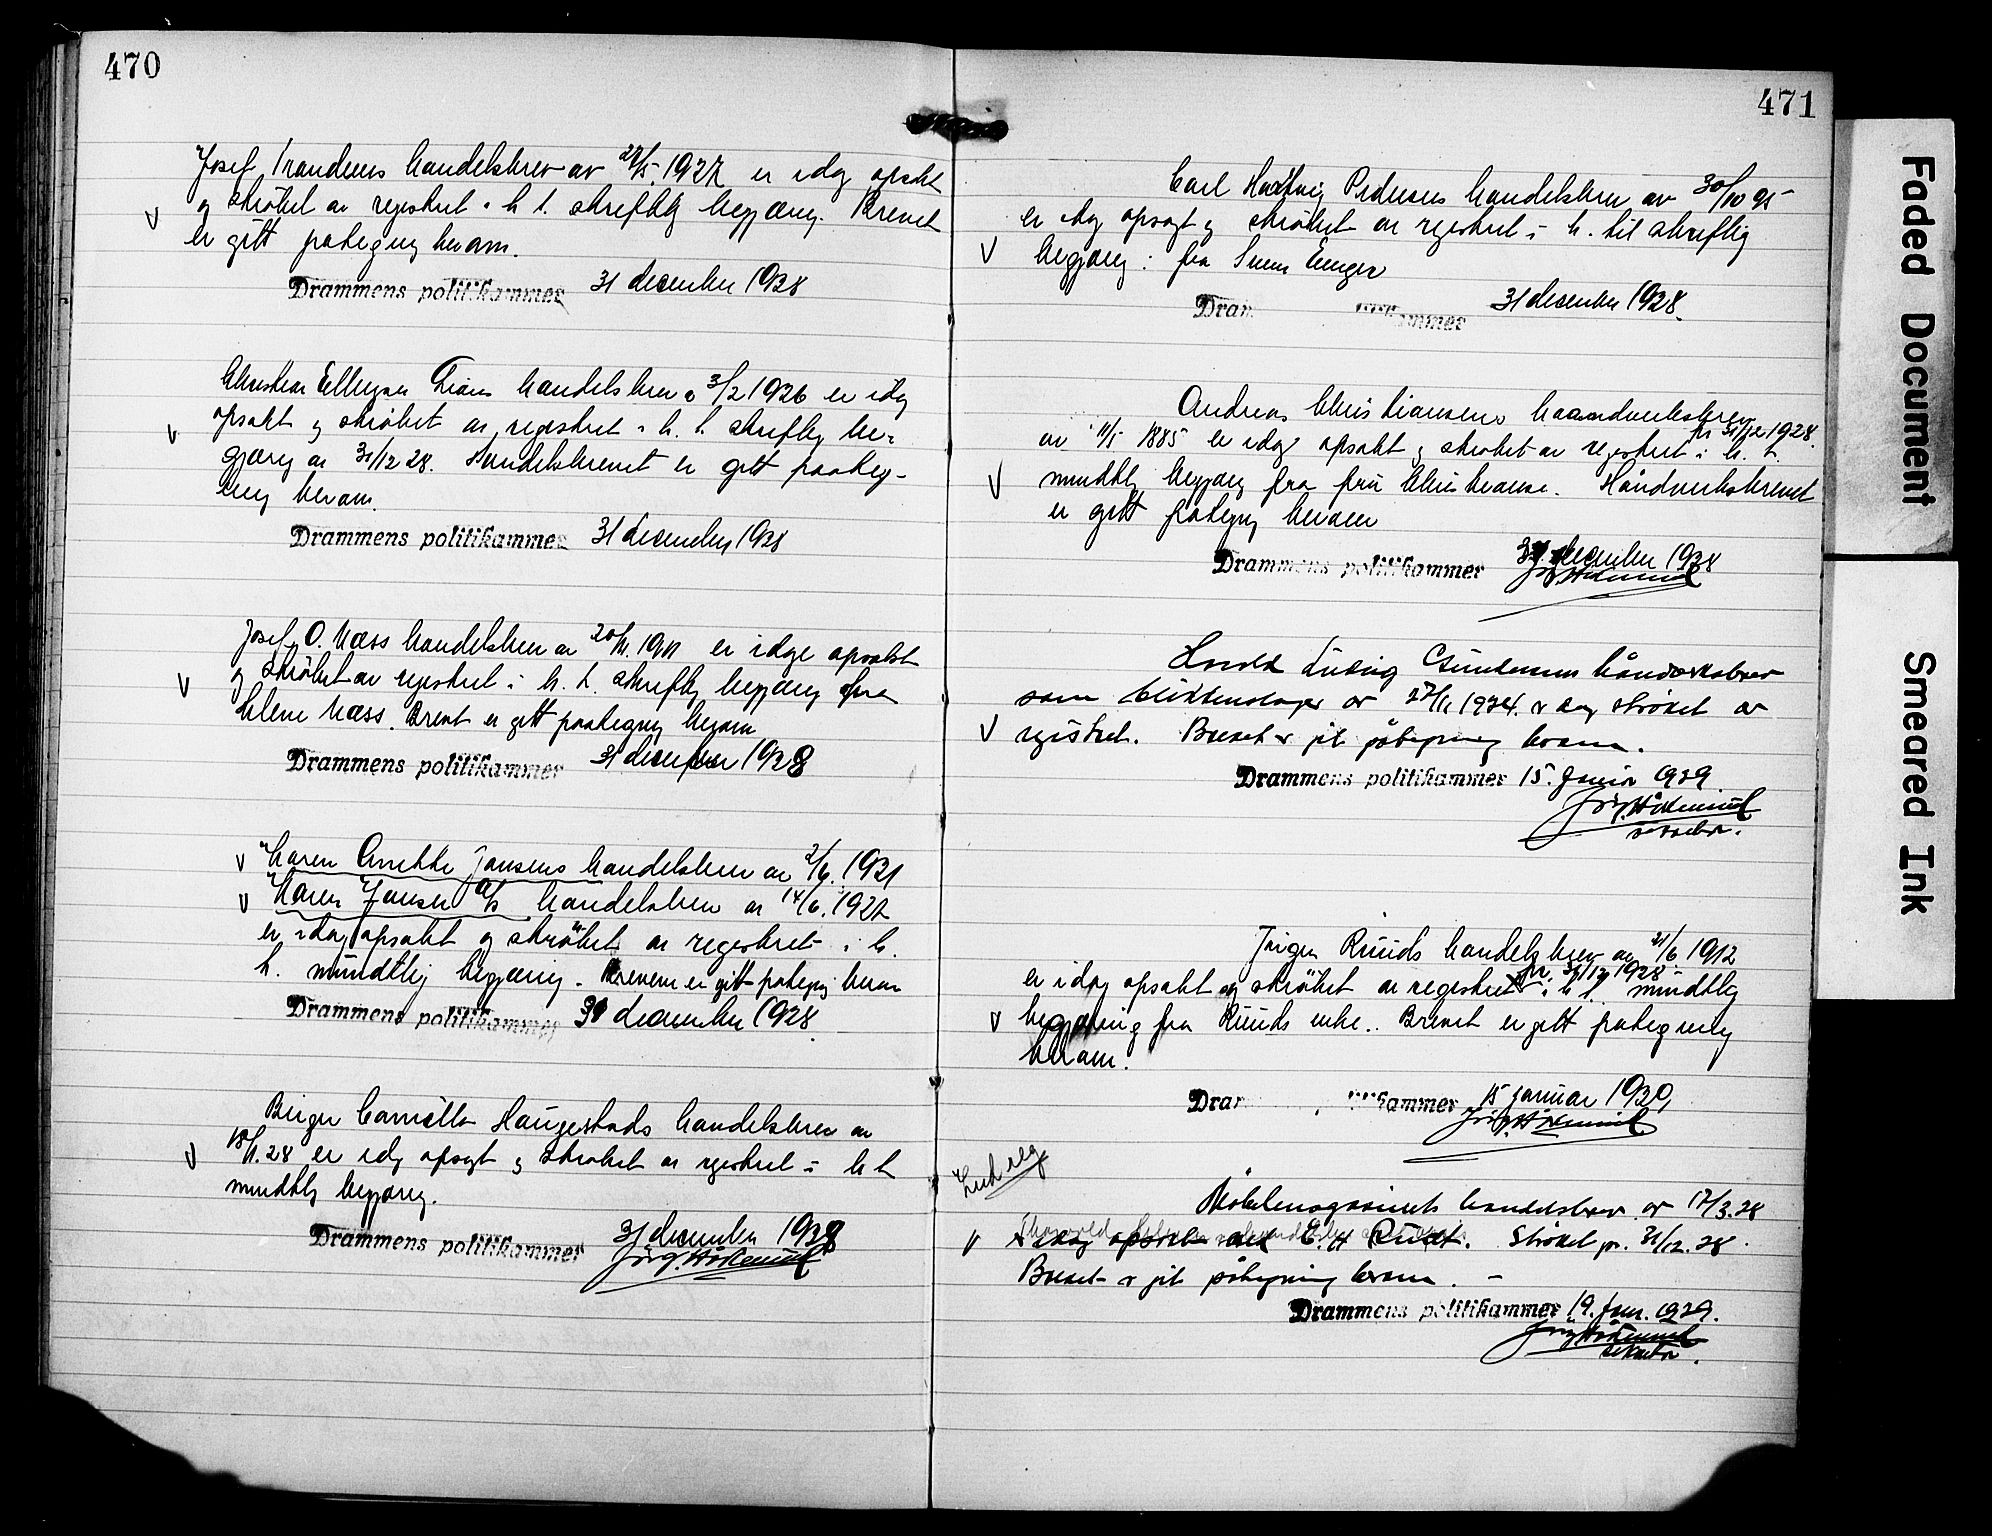 470
Josef Trandems handelsbrev av 27/5.1927 er idag opsakt
og strøket av registret i h. t. skriftlig begjæring. Brevet
er gitt påtegning herom.
Drammens politikammer 31 december 1928
Christian Ellingsen handelsbrev a 3/2 1926 er idag
opsakt og strøket av registret i h. t. skriftlig be-
gjæring av 31/12 28. Handelsbrevet er gitt paateg-
ning herom.
Drammens politikammer 31 december 1928
Josef O. Næss handelsbrev av 1911 er idag opsakt
og strøket av registret i h. t. skriftlig begjæring fra
Helene Næss. Brevet er gitt paategning herom
Drammens politikammer 31 december 1928
Karen Anette Jansens handelsbrev av 2/6. 1921
Karen Jansen A/S handelsbrev av 14/6. 1922
er idag opsakt og strøket av registret i h.
t. mundtlig begjæring. Brevene er gitt påtegning herom
Drammens politikammer 31 december 1928
Birger Camillo Haugestads handelsbrev av
28 er idag opsagt og strøket av registret i h t
mundtlig begjæring.
Drammens politikammer 31 december 1928
471
Carl Hartvig Pedersens handelsbrev av 30/10 95
er idag opsagt og strøket av registret i h. til skriftlig
begjæring fra
Drammens politikammer 31 december 1928.
Andreas Christiansens haandverksbrev
av 11/5 1885 er idag opsakt og strøket av registret pr 31/12 1928. i h. t.
mundtlig begjæring fra fru Christiansen. Håndverksbrevet
er gitt påtegning herom
Drammens politikammer 31. december 1928
Ludvig Gundersens håndverksbrev
som blikkenslager av 1924. er dag strøket av
registret. Brevet er git påtegning herom.
Drammens politikammer 15. Januar 1929
sekretær.
Jørgen Ruuds handelsbrev av 21/6 1912
er idag opsakt og strøket av registret pr. 31/12 1928 i h t. mundtlig
begjæring fra Ruuds enke.. Brevet er gitt påtegning
herom.
Drammens politikammer 15 januar 1929
Møbelmagasinets handelsbrev av 17/3.28
er idag opsakt Strøket pr. 31/12. 28.
Brevet er git påtegning herom. -
Drammens politikammer 19. Jan. 1929.
sekretær.
Faded Document
Smeared Ink